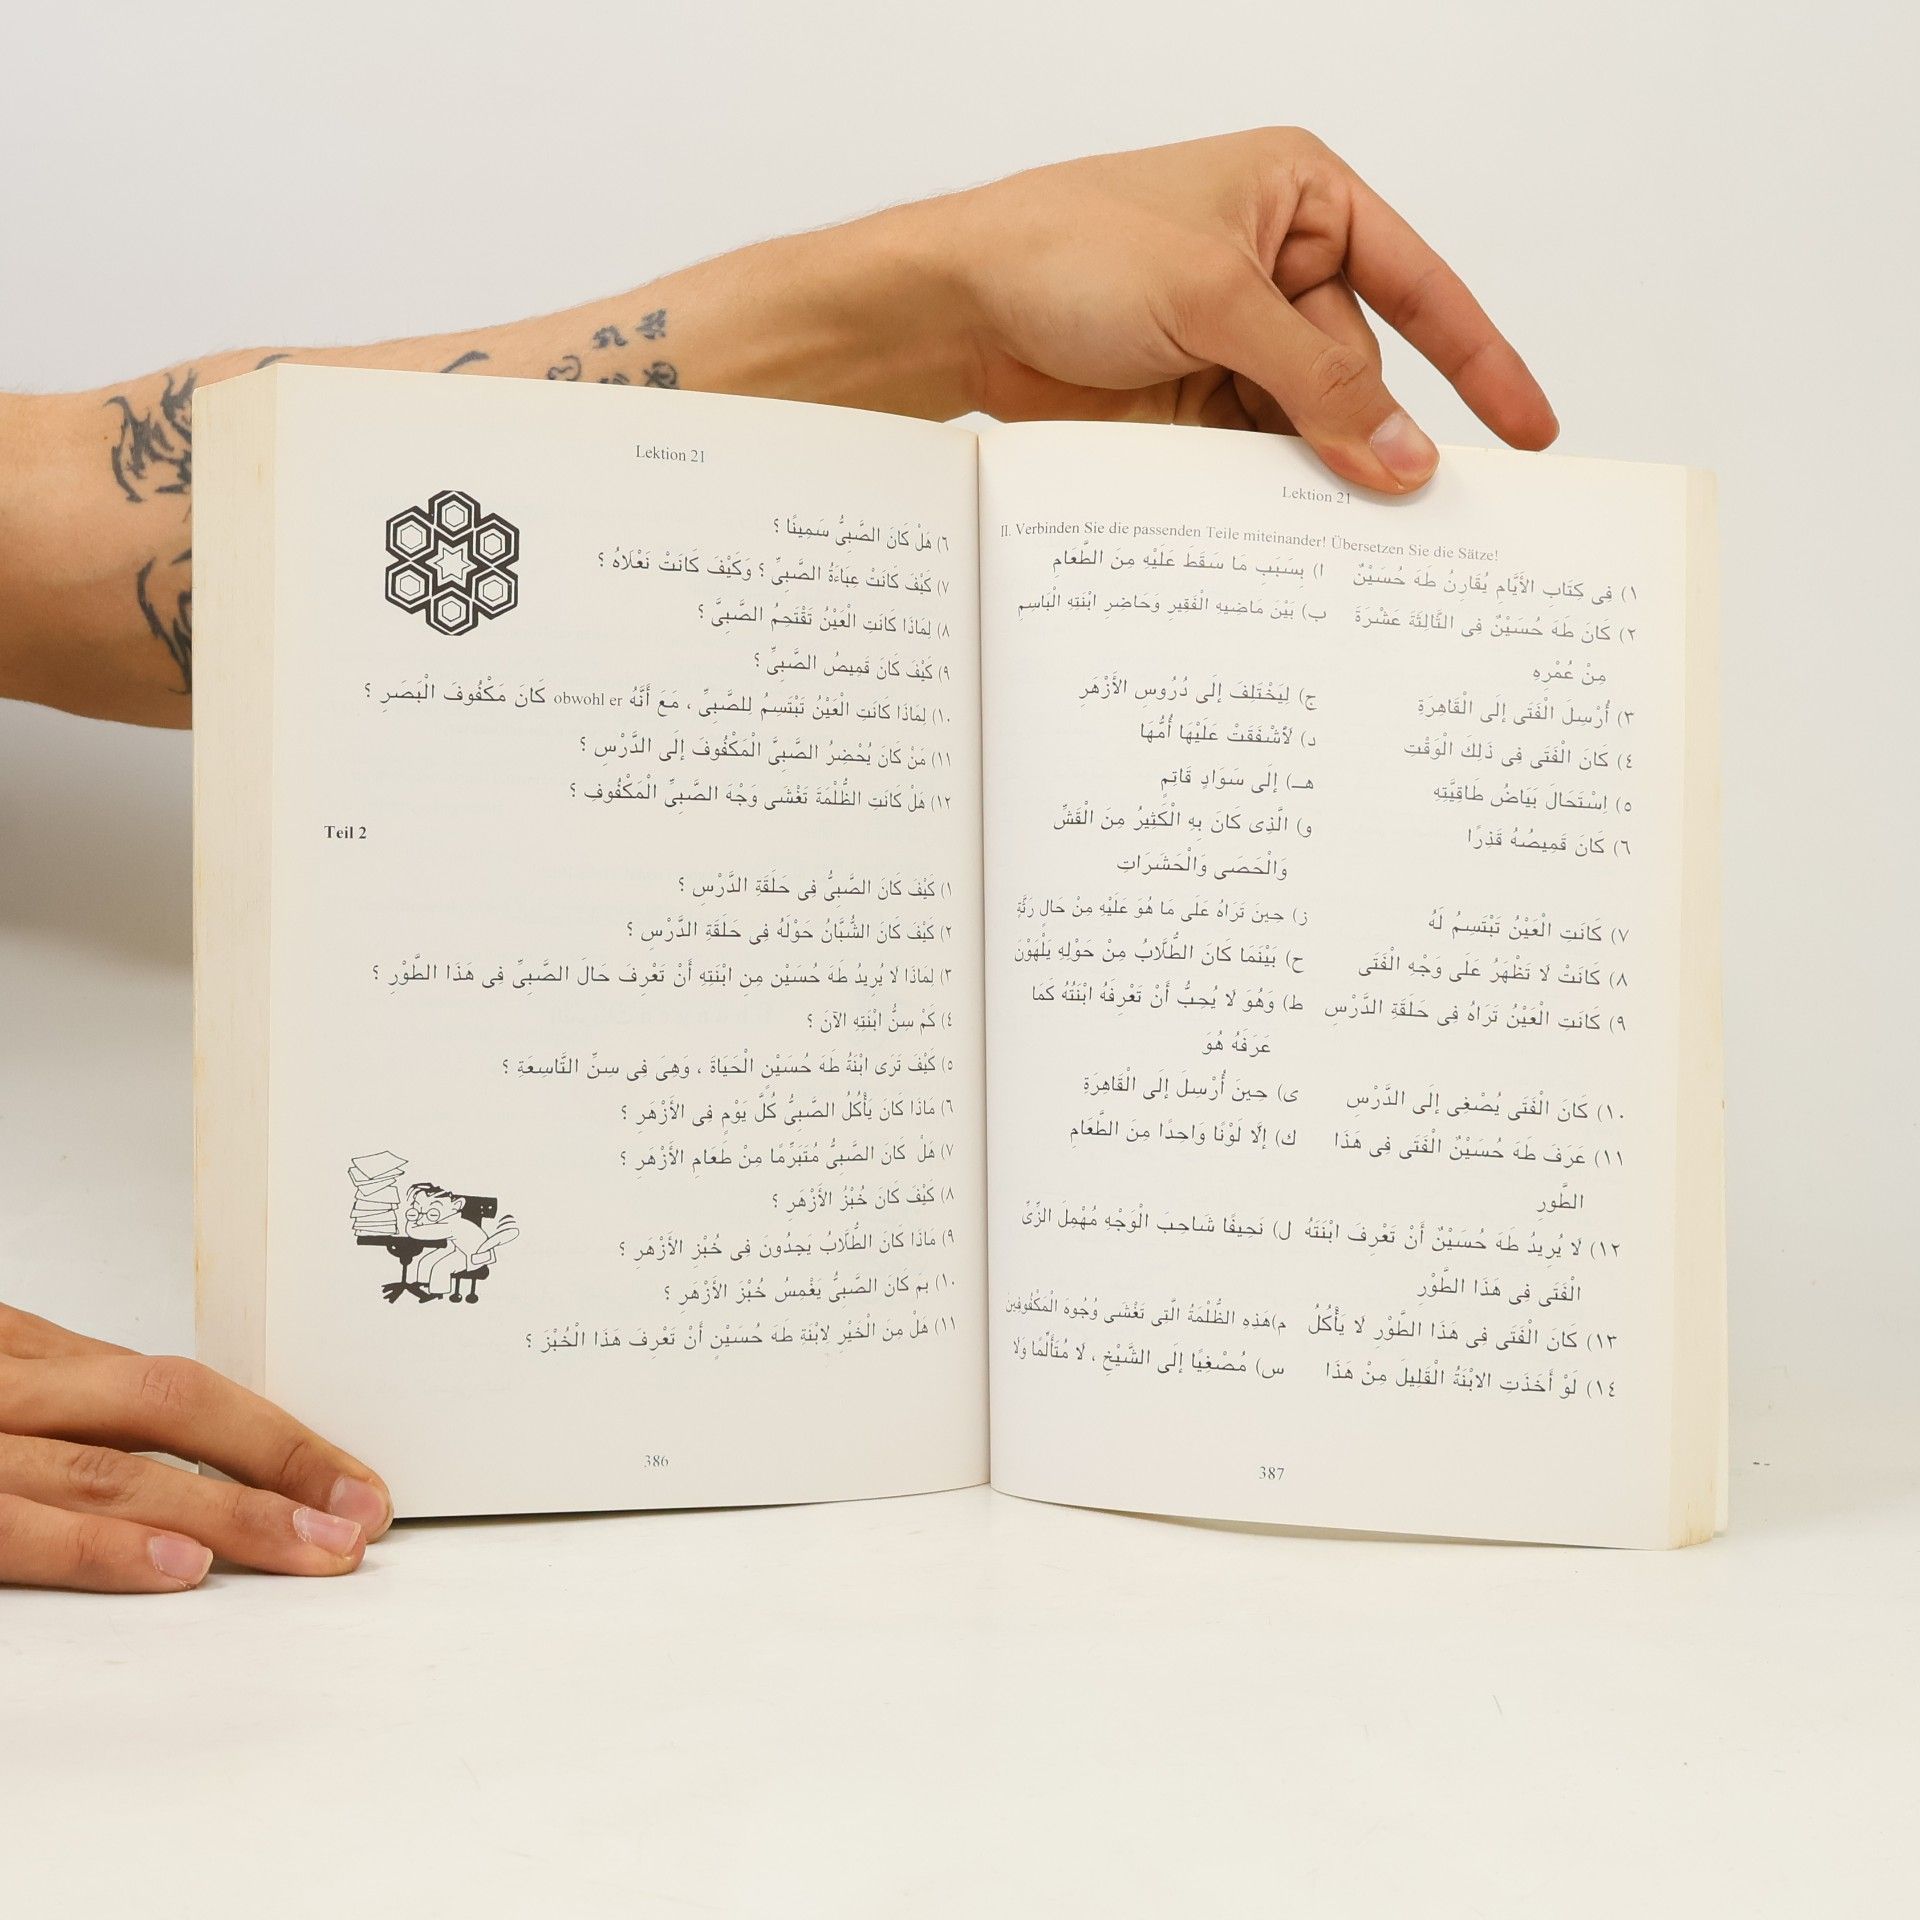 Lektion 21
٦) هَلْ كَانَ الصَّبِىُّ سَمِينًا ؟
٧) كَيْفَ كَانَتْ عِبَاءَةُ الصَّبِىِّ ؟ وَكَيْفَ كَانَتْ نَعْلَاهُ ؟
٨) لِمَاذَا كَانَتِ الْعَيْنُ تَقْتَحِمُ الصَّبِىَّ ؟
٩) كَيْفَ كَانَ قَمِيصُ الصَّبِىِّ ؟
١٠) لِمَاذَا كَانَتِ الْعَيْنُ تَبْتَسِمُ لِلصَّبِىِّ ، مَعَ أَنَّهُ obwohl er كَانَ مَكْفُوفَ الْبَصَرِ ؟
١١) مَنْ كَانَ يُحْضِرُ الصَّبِىَّ الْمَكْفُوفَ إِلَى الدَّرْسِ ؟
١٢) هَلْ كَانَتِ الظُّلْمَةُ تَغْشَى وَجْهَ الصَّبِىِّ الْمَكْفُوفِ ؟
Teil 2
١) كَيْفَ كَانَ الصَّبِىُّ فِى حَلَقَةِ الدَّرْسِ ؟
٢) كَيْفَ كَانَ الشُّبَّانُ حَوْلَهُ فِى حَلَقَةِ الدَّرْسِ ؟
٣) لِمَاذَا لَا يُرِيدُ طَهَ حُسَيْن مِنِ ابْنَتِهِ أَنْ تَعْرِفَ حَالَ الصَّبِىِّ فِى هَذَا الطَّوْرِ ؟
٤) كَمْ سِنُّ ابْنَتِهِ الآنَ ؟
٥) كَيْفَ تَرَى ابْنَةُ طَهَ حُسَيْنٍ الْحَيَاةَ ، وَهِىَ فِى سِنِّ التَّاسِعَةِ ؟
٦) مَاذَا كَانَ يَأْكُلُ الصَّبِىُّ كُلَّ يَوْمٍ فِى الأَزْهَرِ ؟
٧) هَلْ كَانَ الصَّبِىُّ مُتَبَرِّمًا مِنْ طَعَامِ الأَزْهَرِ ؟
٨) كَيْفَ كَانَ خُبْزُ الأَزْهَرِ ؟
٩) مَاذَا كَانَ الطُّلَّابُ يَجِدُونَ فِى خُبْزِ الأَزْهَرِ ؟
١٠) بِمَ كَانَ الصَّبِىُّ يَغْمِسُ خُبْزَ الأَزْهَرِ ؟
١١) هَلْ مِنَ الْخَيْرِ لِابْنَةِ طَهَ حُسَيْنٍ أَنْ تَعْرِفَ هَذَا الْخُبْزَ ؟
386
Lektion 21
II. Verbinden Sie die passenden Teile miteinander! Übersetzen Sie die Sätze!
١) فِى كِتَابِ الأَيَّامِ يُقَارِنُ طَهَ حُسَيْنٌ ا) بِسَبَبِ مَا سَقَطَ عَلَيْهِ مِنَ الطَّعَامِ
٢) كَانَ طَهَ حُسَيْنٌ فِى الثَّالِثَةَ عَشْرَةَ ب) بَيْنَ مَاضِيهِ الْفَقِيرِ وَحَاضِرِ ابْنَتِهِ الْبَاسِمِ
مِنْ عُمْرِهِ
٣) أُرْسِلَ الْفَتَى إِلَى الْقَاهِرَةِ ج) لِيَخْتَلِفَ إِلَى دُرُوسِ الأَزْهَرِ
٤) كَانَ الْفَتَى فِى ذَلِكَ الْوَقْتِ د) لَأَشْفَقَتْ عَلَيْهَا أُمُّهَا
٥) اِسْتَحَالَ بَيَاضُ طَاقِيَّتِهِ هـ) إِلَى سَوَادٍ قَاتِمٍ
٦) كَانَ قَمِيصُهُ قَذِرًا و) الَّذِى كَانَ بِهِ الْكَثِيرُ مِنَ الْقَشِّ
وَالْحَصَى وَالْحَشَرَاتِ
٧) كَانَتِ الْعَيْنُ تَبْتَسِمُ لَهُ ز) حِينَ تَرَاهُ عَلَى مَا هُوَ عَلَيْهِ مِنْ حَالٍ رَثَّةٍ
٨) كَانَتْ لَا تَظْهَرُ عَلَى وَجْهِ الْفَتَى ح) بَيْنَمَا كَانَ الطُّلَّابُ مِنْ حَوْلِهِ يَلْهَوْنَ
٩) كَانَتِ الْعَيْنُ تَرَاهُ فِى حَلَقَةِ الدَّرْسِ ط) وَهُوَ لَا يُحِبُّ أَنْ تَعْرِفَهُ ابْنَتُهُ كَمَا
عَرَفَهُ هُوَ
١٠) كَانَ الْفَتَى يُصْغِى إِلَى الدَّرْسِ ى) حِينَ أُرْسِلَ إِلَى الْقَاهِرَةِ
١١) عَرَفَ طَهَ حُسَيْنٌ الْفَتَى فِى هَذَا ك) إِلَّا لَوْنًا وَاحِدًا مِنَ الطَّعَامِ
الطَّورِ
١٢) لَا يُرِيدُ طَهَ حُسَيْنٌ أَنْ تَعْرِفَ ابْنَتَهُ ل) نَحِيفًا شَاحِبَ الْوَجْهِ مُهْمِلَ الزِّىِّ
الْفَتَى فِى هَذَا الطَّوْرِ
١٣) كَانَ الْفَتَى فِى هَذَا الطَّوْرِ لَا يَأْكُلُ م)هَذِهِ الظُّلْمَةُ الَّتِى تَغْشَى وُجُوهَ الْمَكْفُوفِينَ
١٤) لَوْ أَخَذَتِ الابْنَةُ الْقَلِيلَ مِنْ هَذَا س) مُصْغِيًا إِلَى الشَّيْخِ ، لَا مُتَأَلِّمًا وَلَا
387